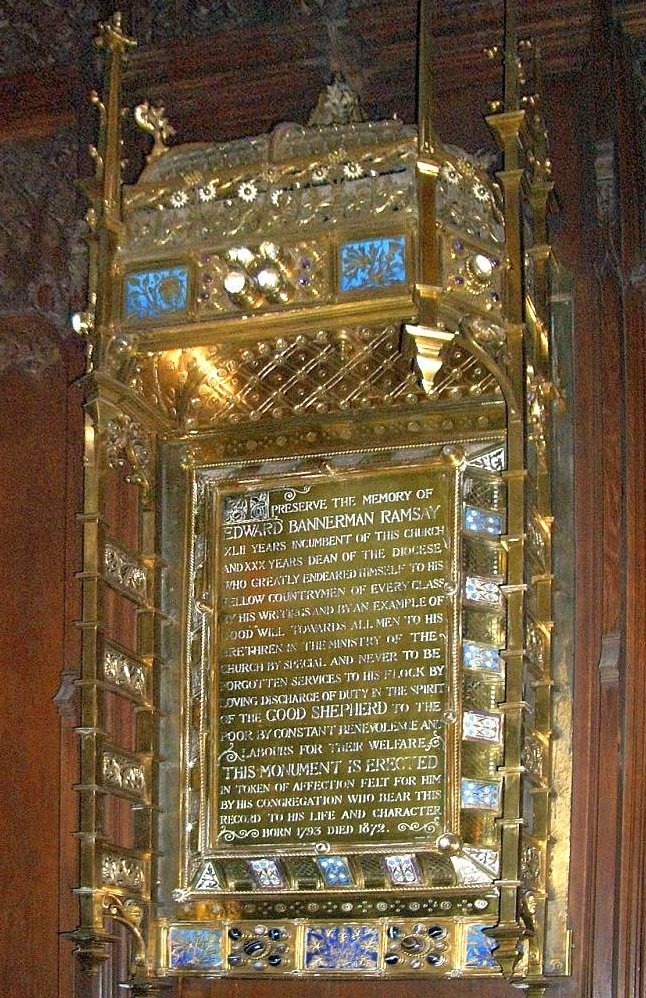 TO PRESERVE THE MEMORY OF
EDWARD BANNERMAN RAMSAY
XLII YEARS INCUMBENT OF THIS CHURCH
AND XXX YEARS DEAN OF THE DIOCESE
WHO GREATLY ENDEARED HIMSELF TO HIS
FELLOW COUNTRYMEN OF EVERY CLASS
BY HIS WRITINGS AND BY AN EXAMPLE OF
GOOD WILL TOWARDS ALL MEN TO HIS
BRETHREN IN THE MINISTRY OF THE
CHURCH BY SPECIAL AND NEVER TO BE
FORGOTTEN SERVICES TO HIS FLOCK BY
LOVING DISCHARGE OF DUTY IN THE SPIRIT
OF THE GOOD SHEPHERD TO THE
POOR BY CONSTANT BENEVOLENCE AND
LABOURS FOR THEIR WELFARE
THIS MONUMENT IS ERECTED
IN TOKEN OF AFFECTION FELT FOR HIM
BY HIS CONGREGATION WHO BEAR THIS
RECORD TO HIS LIFE AND CHARACTER
BORN 1793 DIED 1872.